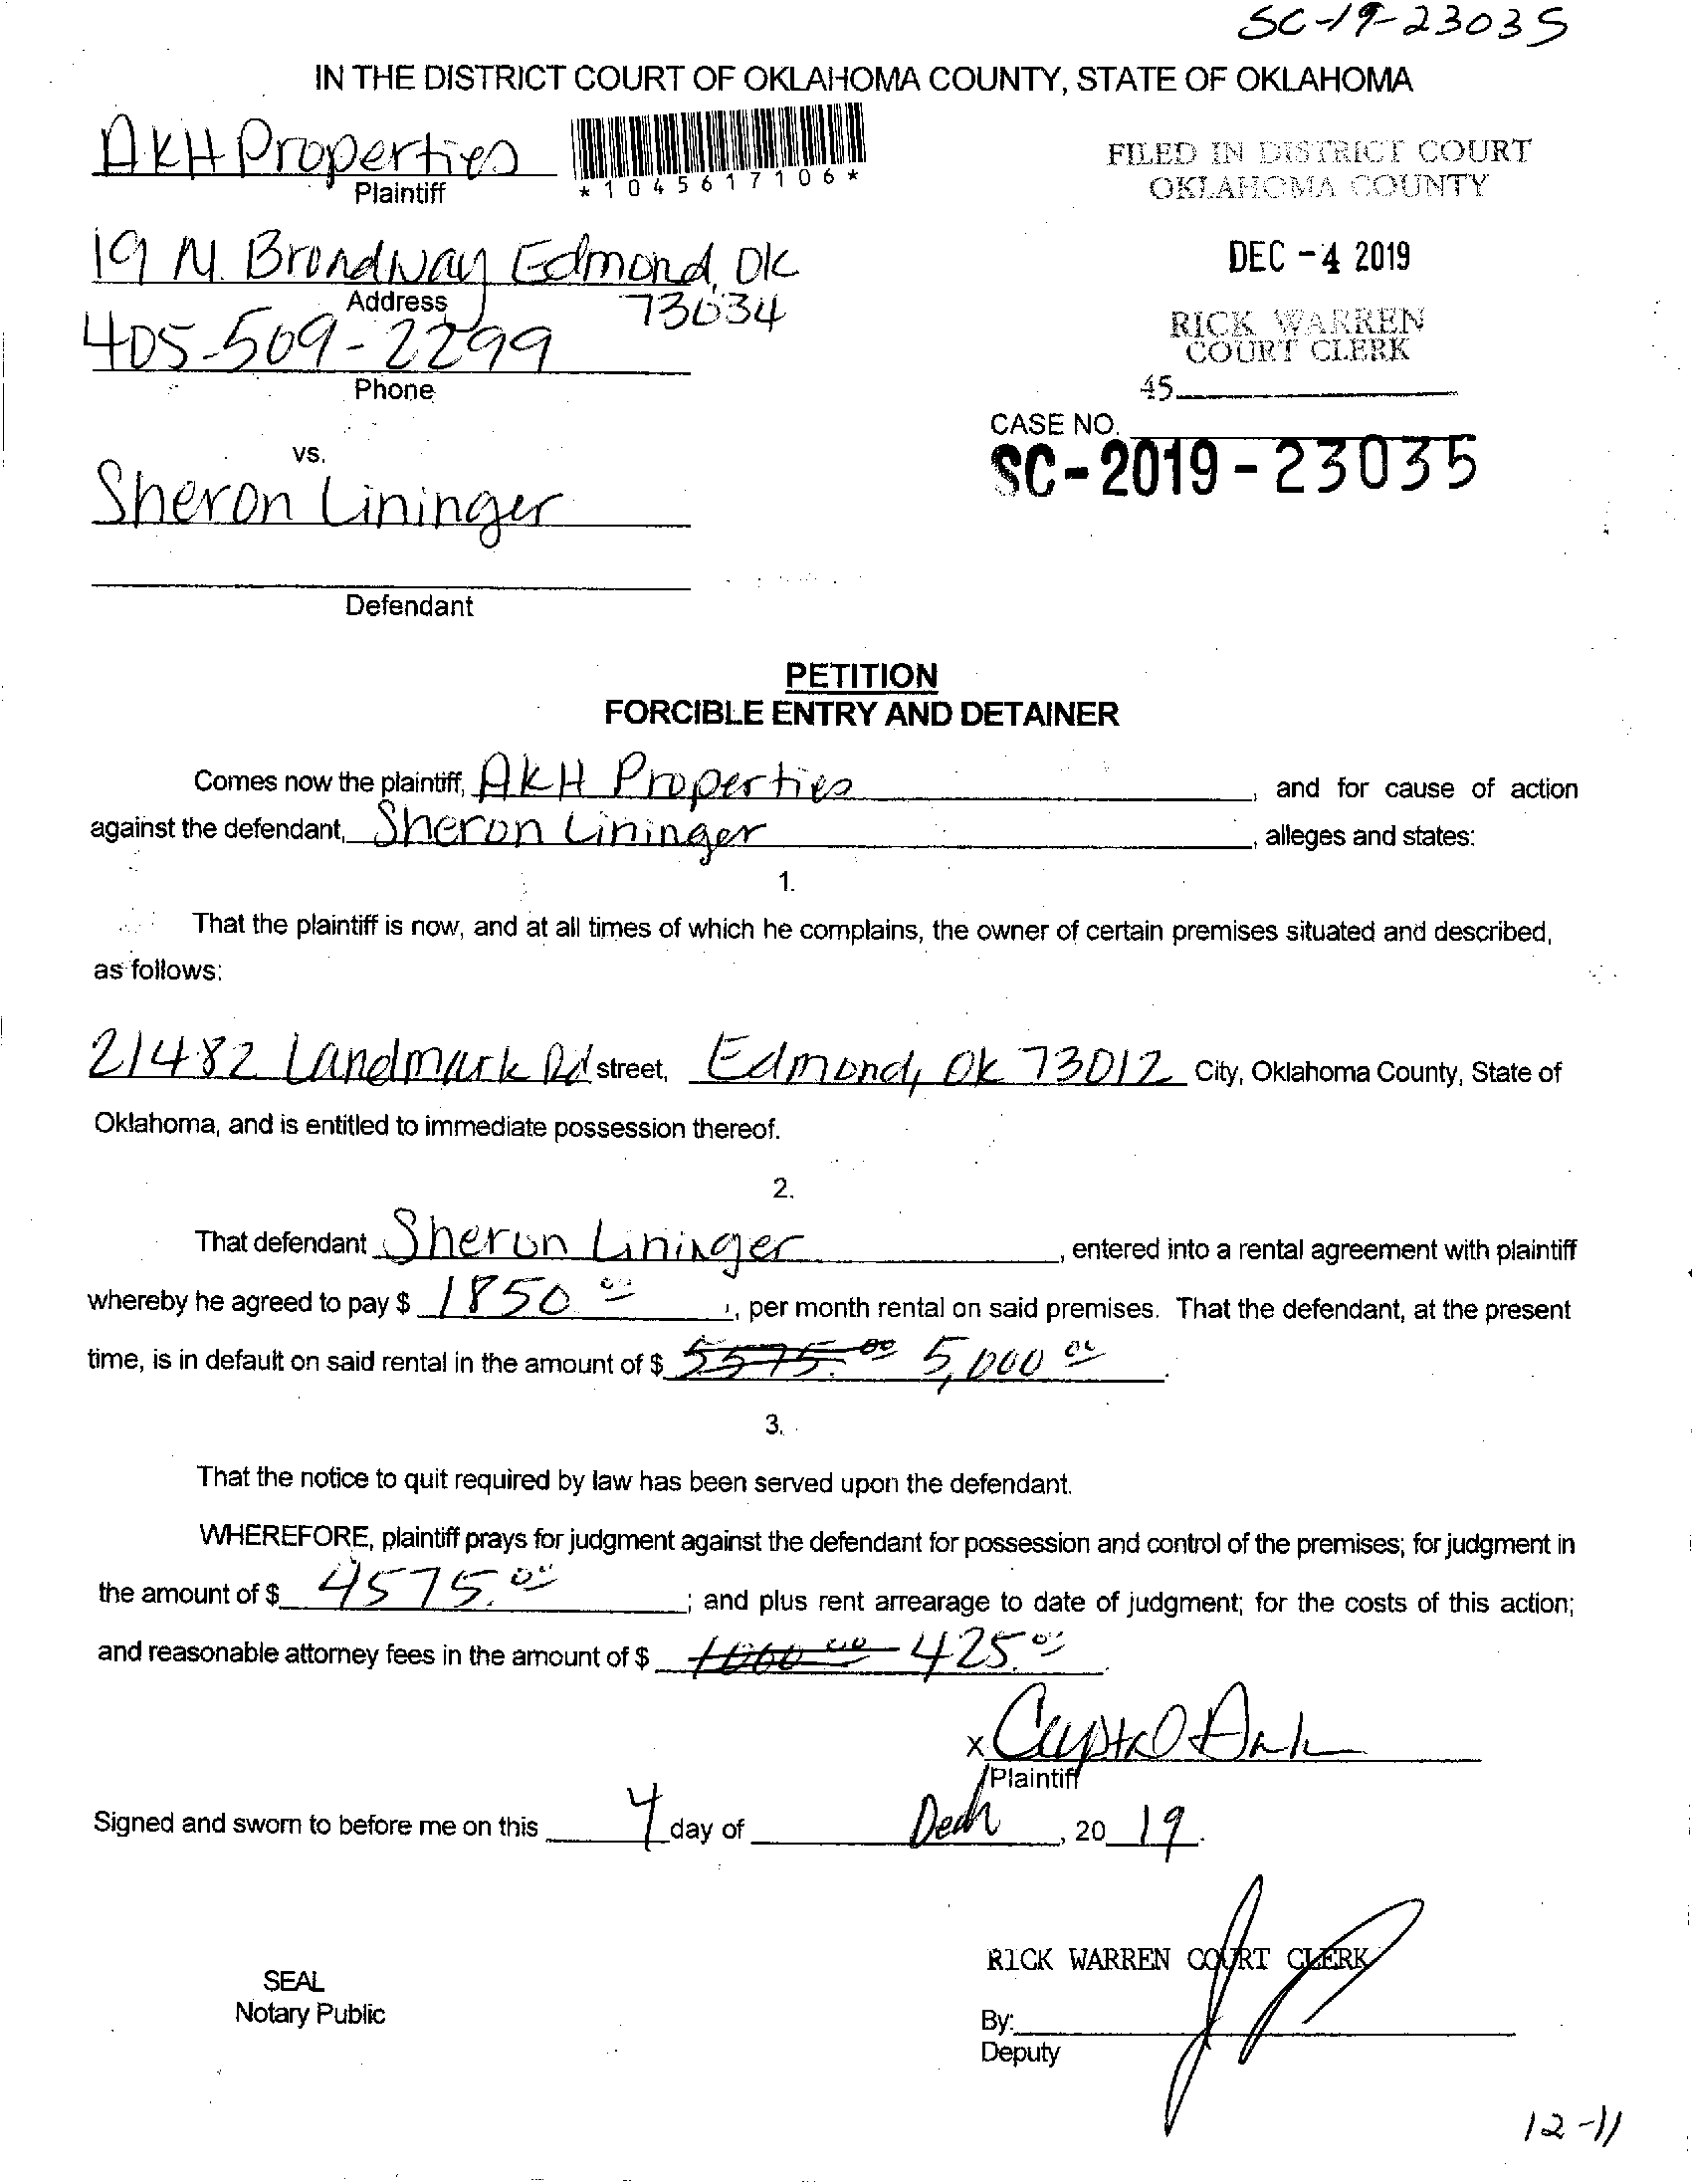 SC-19-23035
IN THE DISTRICT COURT OF OKLAHOMA COUNTY, STATE OF OKLAHOMA
AKH Properties
Plaintiff
*1045617106*
FILED IN DISTRICT COURT
OKLAHOMA COUNTY
19 N. Broadway Edmond, OK
73034
Address
DEC -4 2019
405-509-2299
Phone
RICK WARREN
COURT CLERK
45
CASE NO.
SC-2019-23035
vs.
Sheron Lininger
Defendant
PETITION
FORCIBLE ENTRY AND DETAINER
Comes now the plaintiff, AKH Properties, and for cause of action
against the defendant, Sheron Lininger, alleges and states:
1.
That the plaintiff is now, and at all times of which he complains, the owner of certain premises situated and described,
as follows:
21482 Landmark Rd street, Edmond, OK 73012 City, Oklahoma County, State of
Oklahoma, and is entitled to immediate possession thereof.
2.
That defendant Sheron Lininger, entered into a rental agreement with plaintiff
whereby he agreed to pay $ 1850.00, per month rental on said premises. That the defendant, at the present
time, is in default on said rental in the amount of $ 5575.00 5,000 00.
3.
That the notice to quit required by law has been served upon the defendant.
WHEREFORE, plaintiff prays for judgment against the defendant for possession and control of the premises; for judgment in
the amount of $ 4575.00; and plus rent arrearage to date of judgment; for the costs of this action;
and reasonable attorney fees in the amount of $ 1000 00 425.00.
X
Plaintiff
Signed and sworn to before me on this 4 day of Dech, 20 19.
RICK WARREN COURT CLERK
SEAL
Notary Public
By:
Deputy
12-11